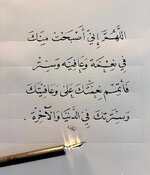 اللَّهُمَّ إِنِّي أَصْبَحْتُ مِنْكَ
فِي نِعْمَةٍ وَعَافِيَةٍ وَسِتْرٍ
فَأَتْمِمْ نِعْمَتَكَ عَلَيَّ وَعَافِيَتَكَ
وَسِتْرَكَ فِي الدُّنْيَا وَالْآخِرَةِ.